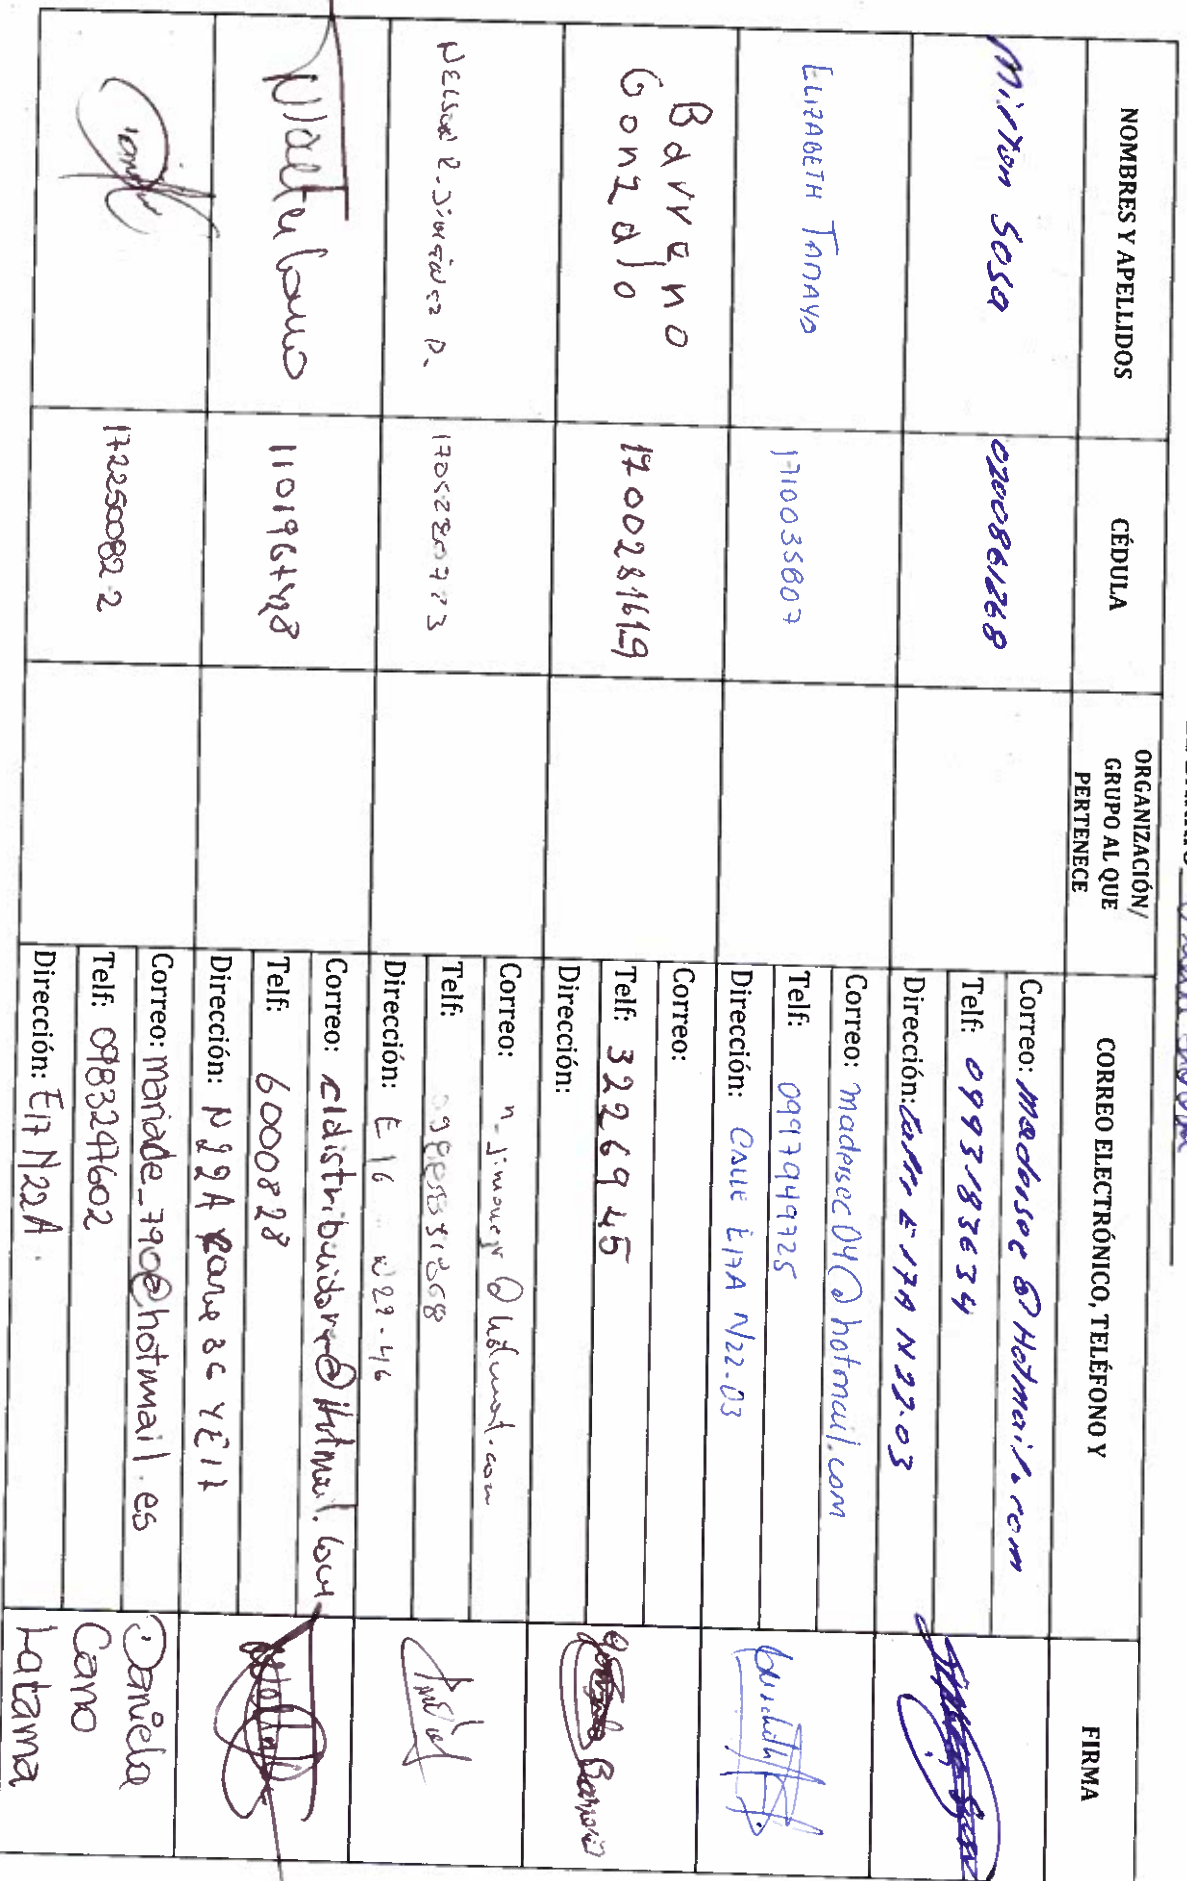 NOMBRES Y APELLIDOS
CÉDULA
ORGANIZACIÓN/
GRUPO AL QUE
PERTENECE
CORREO ELECTRÓNICO, TELÉFONO Y
FIRMA
Milton Sosa
0200861268
Correo: madeisec@Hotmail.com
Telf: 0993183634
Dirección: Calle E17A N22-03
ELIZABETH TAMAYO
1710035807
Correo: madeisec04@hotmail.com
Telf: 0997949725
Dirección: CALLE E17A N22-03
Barreno
Gonzalo
170028161-9
Correo:
Telf: 3226945
Dirección:
Gonzalo Barreno
NELSON R. JIMÉNEZ P.
Correo:
Telf:
Dirección: E16 N22-46
Walter Cano
Correo: cldistribuidora@Hotmail.com
Telf: 6000828
Dirección: N22A Y E17
172250082-2
Correo: mariade_790@hotmail.es
Telf: 0983247602
Dirección: E17 N22A.
Daniela
Cano
Latama